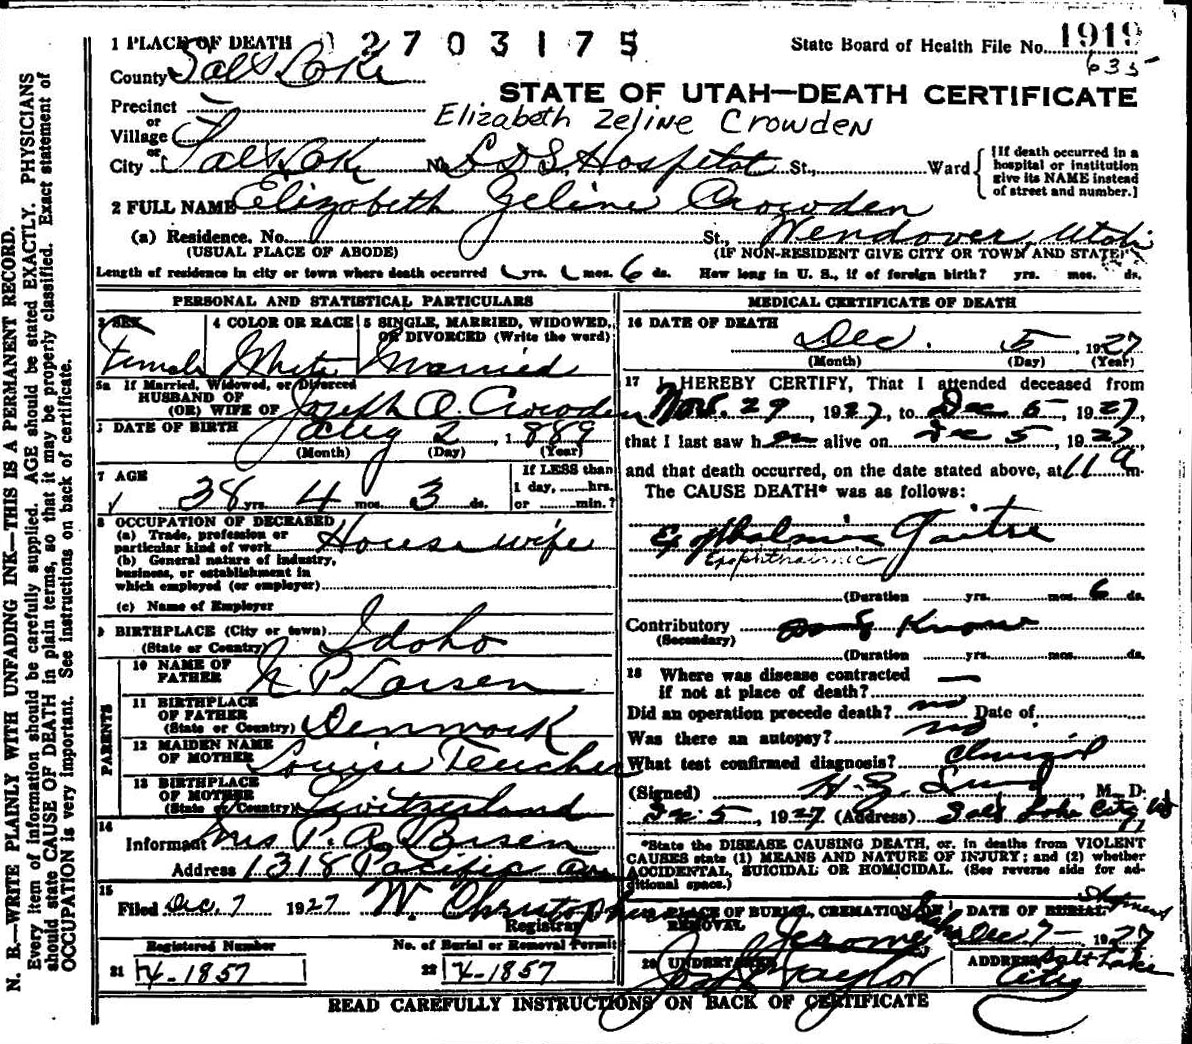 1 PLACE OF DEATH 2 7 0 3 1 7 5 State Board of Health File No. 1919
County Salt Lake 635
STATE OF UTAH—DEATH CERTIFICATE
Precinct
or
Village
Elizabeth Zeline Crowden
or
City Salt Lake No. L D S Hospital St., Ward
[If death occurred in a
hospital or institution
give its NAME instead
of street and number.]
2 FULL NAME Elizabeth Zeline Crowden
(a) Residence. No. St., Wendover, Utah
(USUAL PLACE OF ABODE) (IF NON-RESIDENT GIVE CITY OR TOWN AND STATE)
Length of residence in city or town where death occurred yrs. mos. 6 ds. How long in U. S., if of foreign birth? yrs. mos. ds.
PERSONAL AND STATISTICAL PARTICULARS
3 SEX 4 COLOR OR RACE 5 SINGLE, MARRIED, WIDOWED,
OR DIVORCED (Write the word)
Female White Married
5a If Married, Widowed, or Divorced
HUSBAND OF
(OR) WIFE OF Joseph O. Crowden
DATE OF BIRTH Aug 2, 1889
(Month) (Day) (Year)
7 AGE If LESS than
1 day, hrs.
or min.?
38 yrs. 4 mos. 3 ds.
8 OCCUPATION OF DECEASED
(a) Trade, profession or
particular kind of work Housewife
(b) General nature of industry,
business, or establishment in
which employed (or employer)
(c) Name of Employer
9 BIRTHPLACE (City or town)
(State or Country) Idaho
PARENTS
10 NAME OF
FATHER N P Larsen
11 BIRTHPLACE
OF FATHER
(State or Country) Denmark
12 MAIDEN NAME
OF MOTHER Louise Teucher
13 BIRTHPLACE
OF MOTHER
(State or Country) Switzerland
14
Informant Mrs P. A.
Address 1318 Pacific Ave
15
Filed Dec. 7 1927 W. Christopherson
Registrar
Registered Number No. of Burial or Removal Permit
21 4-1857 22 4-1857
MEDICAL CERTIFICATE OF DEATH
16 DATE OF DEATH
Dec. 5, 1927
(Month) (Day) (Year)
17 I HEREBY CERTIFY, That I attended deceased from
Nov. 29 1927, to Dec 5 1927,
that I last saw her alive on Dec 5, 1927,
and that death occurred, on the date stated above, at 11 a m.
The CAUSE DEATH* was as follows:
Exopthalmic Goitre
Exophthalmic
(Duration yrs. mos. 6 ds.
Contributory Know
(Secondary)
(Duration yrs. mos. ds.
18 Where was disease contracted
if not at place of death? —
Did an operation precede death? no Date of
Was there an autopsy? no
What test confirmed diagnosis? Clinical
(Signed) H. Z. Lund, M. D.
Dec. 5, 1927 (Address) Salt Lake City, Ut
*State the DISEASE CAUSING DEATH, or, in deaths from VIOLENT
CAUSES state (1) MEANS AND NATURE OF INJURY; and (2) whether
ACCIDENTAL, SUICIDAL OR HOMICIDAL. (See reverse side for ad-
ditional space.)
PLACE OF BURIAL, CREMATION OR
REMOVAL Jerome Idaho
DATE OF BURIAL Shipment
Dec. 7 1927
20 UNDERTAKER Taylor
ADDRESS Salt Lake
City
READ CAREFULLY INSTRUCTIONS ON BACK OF CERTIFICATE
N. B.—WRITE PLAINLY WITH UNFADING INK—THIS IS A PERMANENT RECORD.
Every item of information should be carefully supplied. AGE should be stated EXACTLY. PHYSICIANS
should state CAUSE OF DEATH in plain terms, so that it may be properly classified. Exact statement of
OCCUPATION is very important. See instructions on back of certificate.